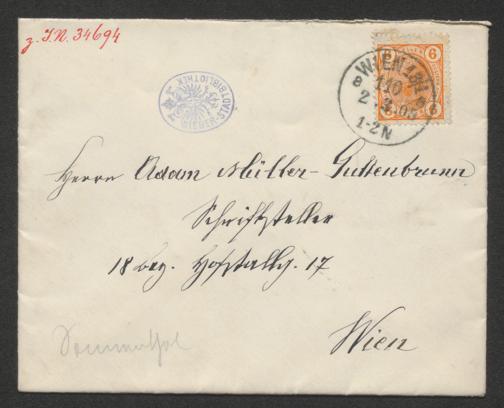 z. I.N. 34694
WIENER-STADTBIBLIOTHEK
6
WIEN
110
1-2N
Herrn Adam Müller-Guttenbrunn
Schriftsteller
18 bez. 17
Wien